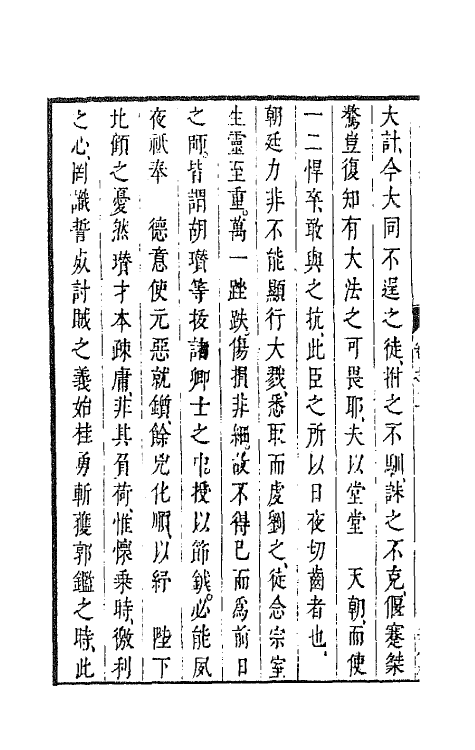 大計今大同不逞之徒拊之不馴誅之不克偃蹇桀
驁豈復知有大法之可畏耶夫以堂堂　天朝而使
一二悍卒敢與之抗此臣之所以日夜切齒者也
朝廷力非不能顯行大戮悉取而虔劉之徒念宗室
生靈至重萬一跌傷損非細故不得已而爲前日
之師皆謂胡瓚等拔諸卿士之中授以節鉞必能夙
夜祇奉　德意使元惡就鑕餘兇化順以紓　陛下
北顧之憂然瓚才本疎庸非其負荷惟懷乘時徼利
之心罔識誓成討賊之義始桂勇斬獲郭鑑之時此